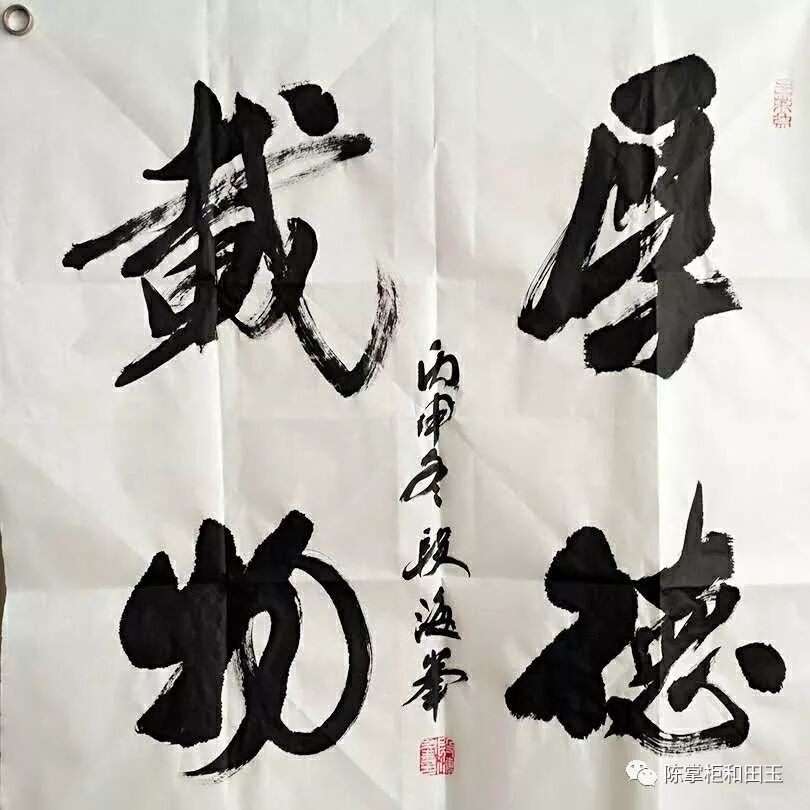 厚德
载物
丙申冬段海峯
陈掌柜和田玉